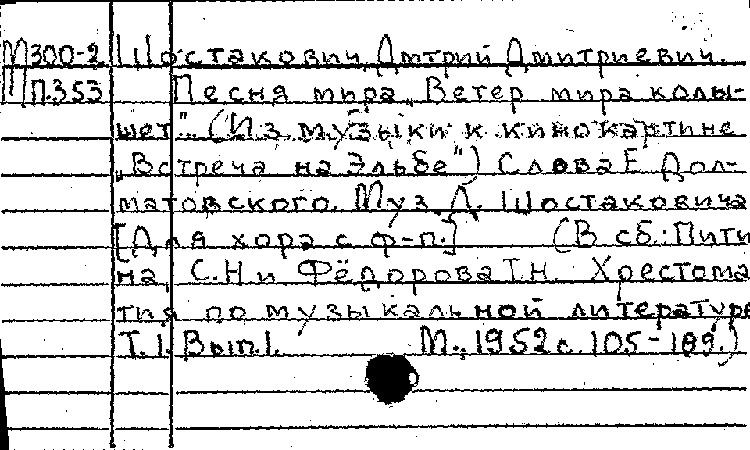 М300-2 Шостакович, Дмтрий Дмитриевич.
П.353 Песня мира „Ветер мира колы-
шет". (Из музыки к кинокартине
„Встреча на Эльбе") Слова Е. Дол-
матовского. Муз. Д. Шостаковича
[Для хора с ф-п.] (В сб.: Пити
на, С.Н и Фёдорова Т.Н. Хрестома
тия по музыкальной литературе
Т.1. Вып.1. М., 1952 с. 105-109.)